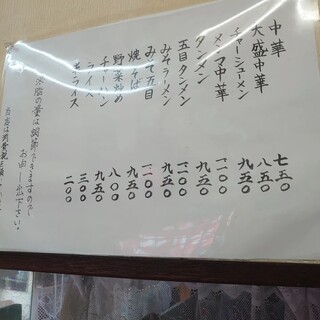 中華 七五〇
大盛中華 八五〇
チャーシューメン 九五〇
メンマ中華
タンメン 九五〇
五目タンメン
みそラーメン 九五〇
みそ五目
焼そば 九五〇
野菜炒め 八〇〇
チャーハン 九五〇
ライス 三〇〇
半ライス 二〇〇
の量は調節できますので
お申し出下さい。
当店は